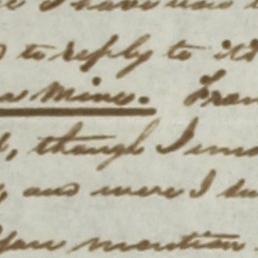 I have
to reply to it
a Mine. Fran
, though I
, and were I
You mention